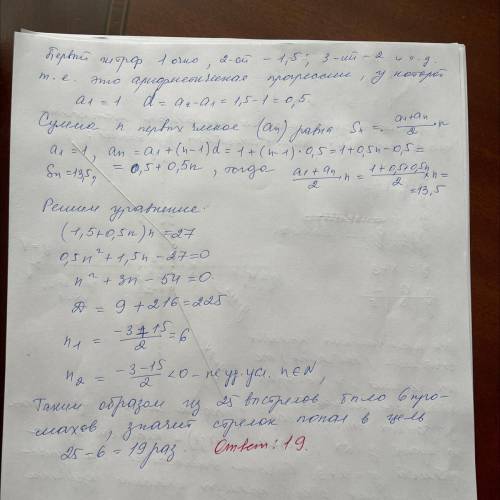 Первый штраф 1 очко, 2-ой - 1,5; 3-ий - 2 и т.д.
т.е. это арифметическая прогрессия, у которой
a₁ = 1 d = a₂ - a₁ = 1,5 - 1 = 0,5.
Сумма n первых членов (aₙ) равна Sₙ = (a₁+aₙ)/2 · n
a₁ = 1, aₙ = a₁ + (n-1)d = 1 + (n-1)·0,5 = 1 + 0,5n - 0,5 =
Sₙ = 13,5, = 0,5 + 0,5n, тогда (a₁+aₙ)/2 · n = (1+0,5+0,5n)/2 · n =
= 13,5
Решим уравнение:
(1,5 + 0,5n)n = 27
0,5n² + 1,5n - 27 = 0
n² + 3n - 54 = 0
D = 9 + 216 = 225
n₁ = (-3+15)/2 = 6
n₂ = (-3-15)/2 < 0 - не уд. усл. n∈N,
Таким образом из 25 выстрелов было 6 про-
махов, значит стрелок попал в цель
25 - 6 = 19 раз. Ответ: 19.